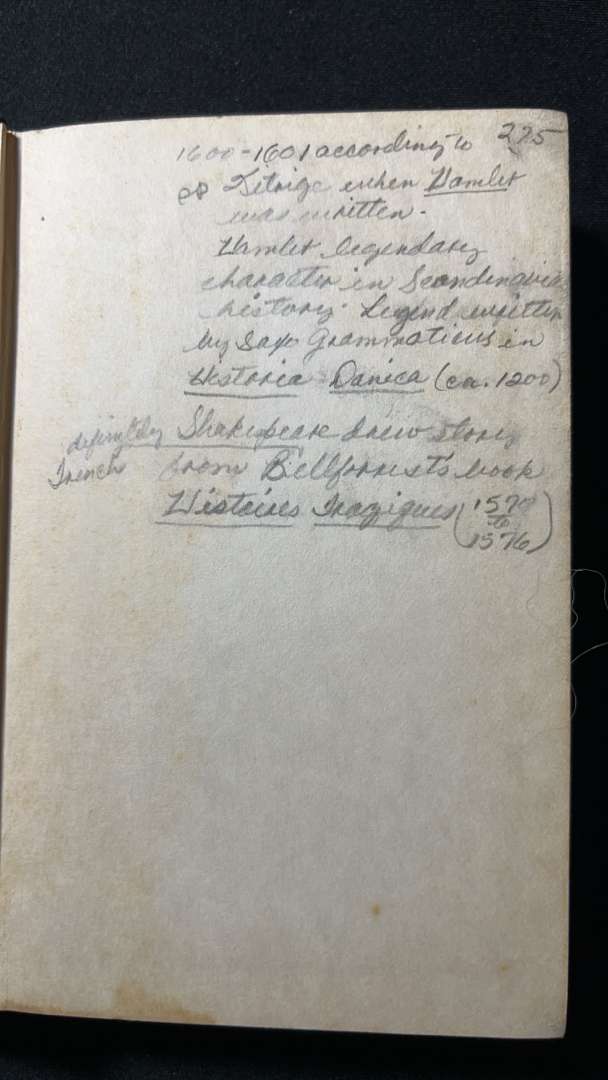 1600-1601 according to 225
Kitrige when Hamlet
was written.
Hamlet legendary
character in Scandinavian
history. Legend written
by Saxo Grammaticus in
Historia Danica (ca. 1200)
definitely Shakespeare drew story
French from Bellforest's book
Histoires Tragiques (1570
to
1576)